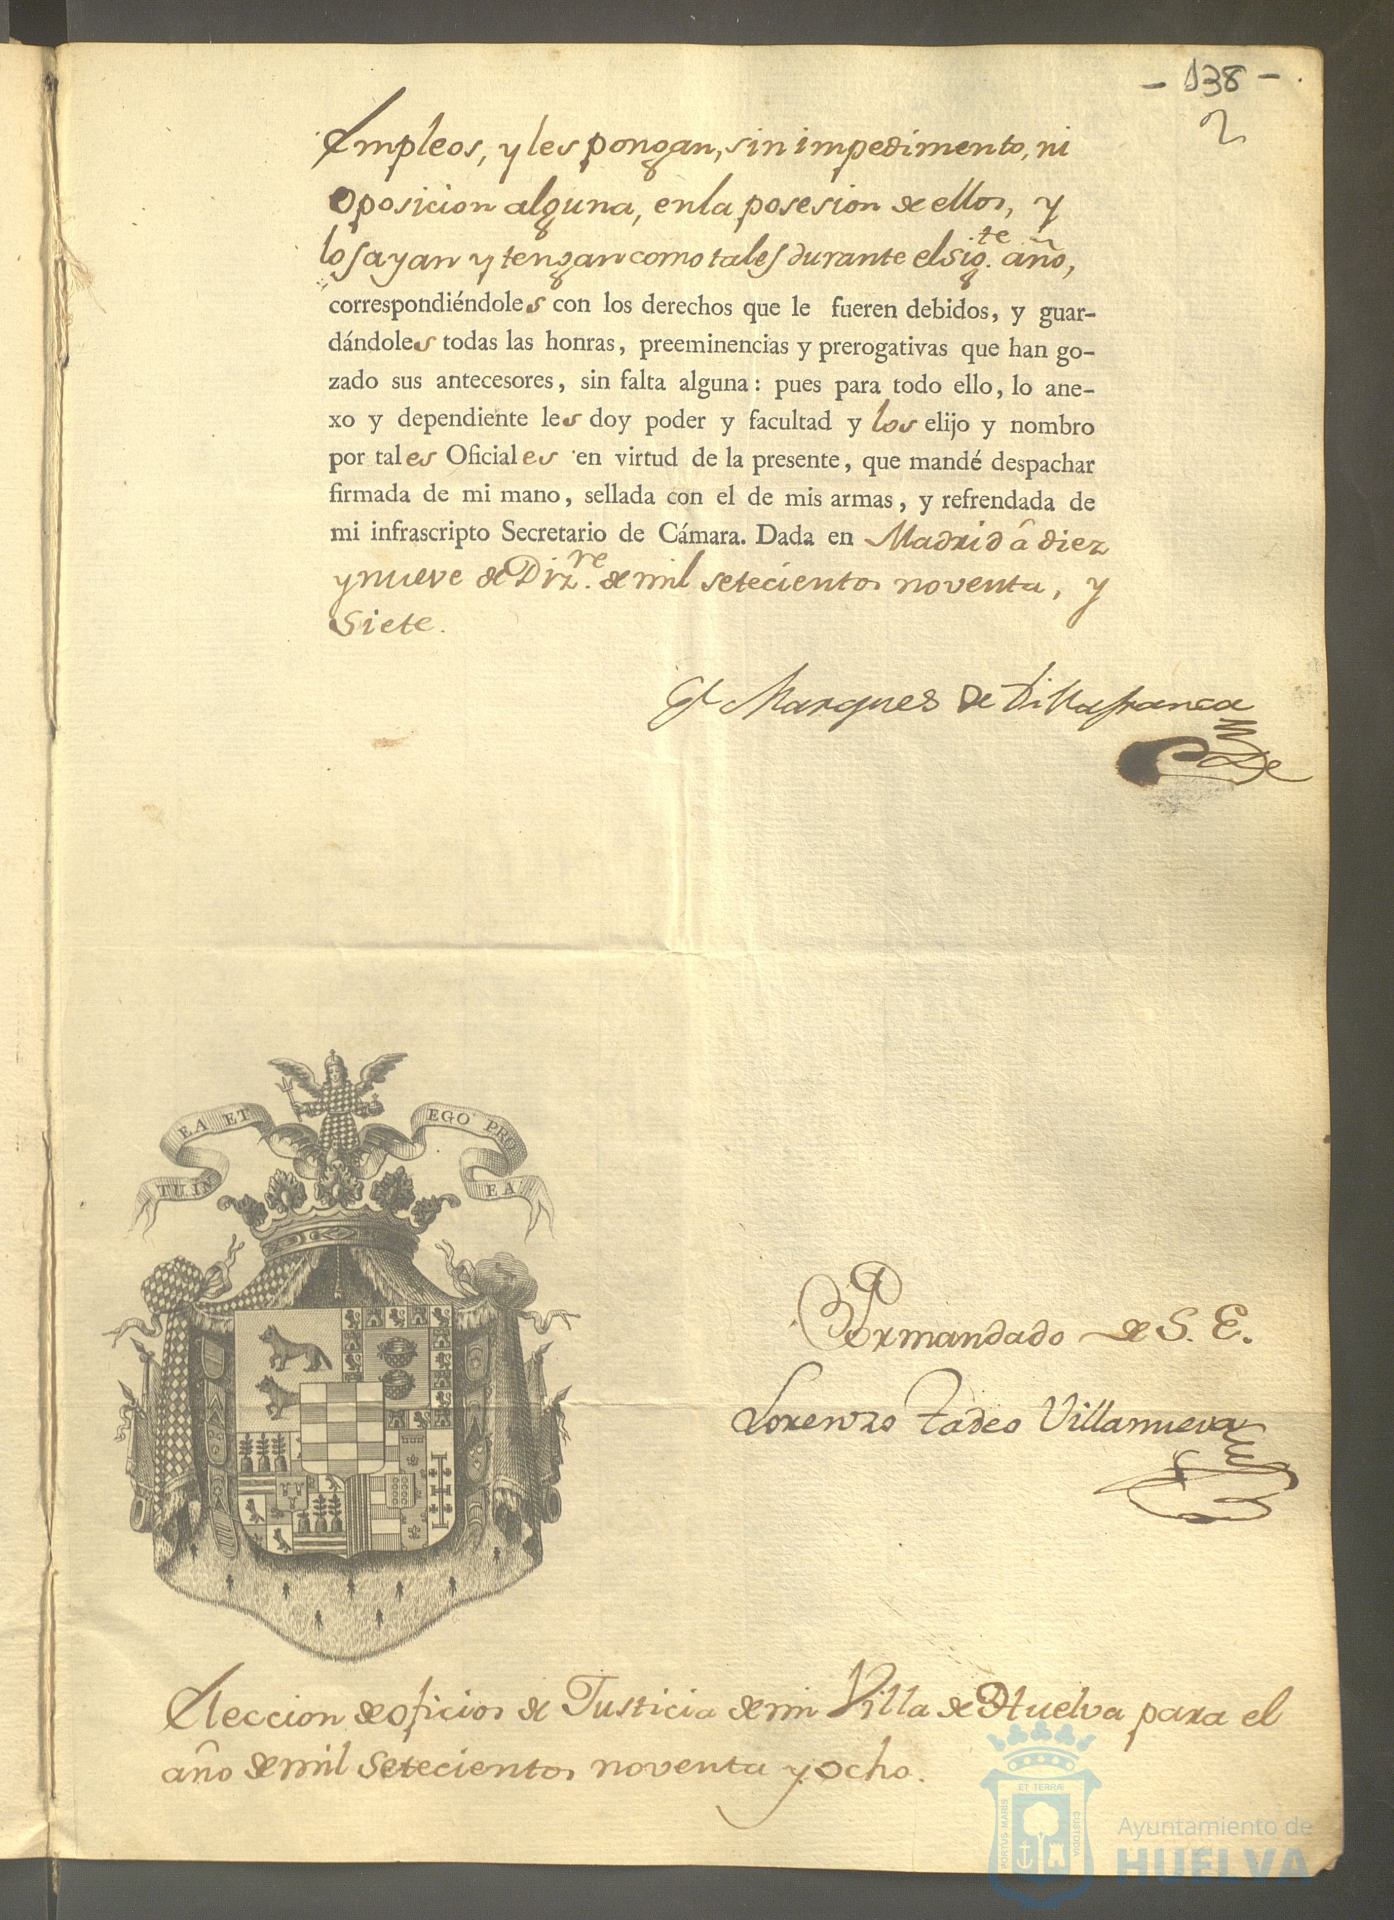 - 138 -
2
Empleos, y les pongan, sin impedimento, ni
oposicion alguna, en la posesion de ellos, y
los ayan y tengan como tales durante el sig.te año,
correspondiéndoles con los derechos que le fueren debidos, y guar-
dándoles todas las honras, preeminencias y prerogativas que han go-
zado sus antecesores, sin falta alguna: pues para todo ello, lo ane-
xo y dependiente les doy poder y facultad y los elijo y nombro
por tales Oficiales en virtud de la presente, que mandé despachar
firmada de mi mano, sellada con el de mis armas, y refrendada de
mi infrascripto Secretario de Cámara. Dada en Madrid â diez
y nueve de Diz.re de mil setecientos noventa, y
Siete.
El Marques de Villafranca
TU IN EA ET EGO PRO EA
Por mandado de S. E.
Lorenzo Tadeo Villanueva
Eleccion de oficios de Justicia de mi Villa de Huelva para el
año de mil setecientos noventa y ocho.
PORTUS MARIS ET TERRÆ CUSTODIA
Ayuntamiento de
HUELVA